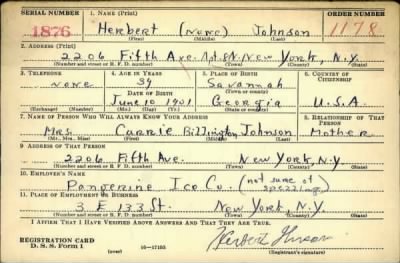 SERIAL NUMBER 1. NAME (Print) ORDER NUMBER
1876 Herbert (None) Johnson 1178
(First) (Middle) (Last)
2. ADDRESS (Print)
2206 Fifth Ave. Apt. 8N. New York, N.Y.
(Number and street or R. F. D. number) (Town) (County) (State)
3. TELEPHONE 4. AGE IN YEARS 5. PLACE OF BIRTH 6. COUNTRY OF CITIZENSHIP
None 39 Savannah
DATE OF BIRTH (Town or county)
June 10 1901 Georgia U.S.A.
(Exchange) (Number) (Mo.) (Day) (Yr.) (State or country)
7. NAME OF PERSON WHO WILL ALWAYS KNOW YOUR ADDRESS 8. RELATIONSHIP OF THAT PERSON
Mrs. Carrie Billingsley Johnson Mother
(Mr., Mrs., Miss) (First) (Middle) (Last)
9. ADDRESS OF THAT PERSON
2206 Fifth Ave. New York, N.Y.
(Number and street or R. F. D. number) (Town) (County) (State)
10. EMPLOYER'S NAME
Pangerine Ice Co. (not sure of spelling)
11. PLACE OF EMPLOYMENT OR BUSINESS
3 E 133 St. New York, N.Y.
(Number and street or R. F. D. number) (Town) (County) (State)
I AFFIRM THAT I HAVE VERIFIED ABOVE ANSWERS AND THAT THEY ARE TRUE.
REGISTRATION CARD
D. S. S. Form 1 (over) 16—17105 Herbert Johnson
(Registrant's signature)